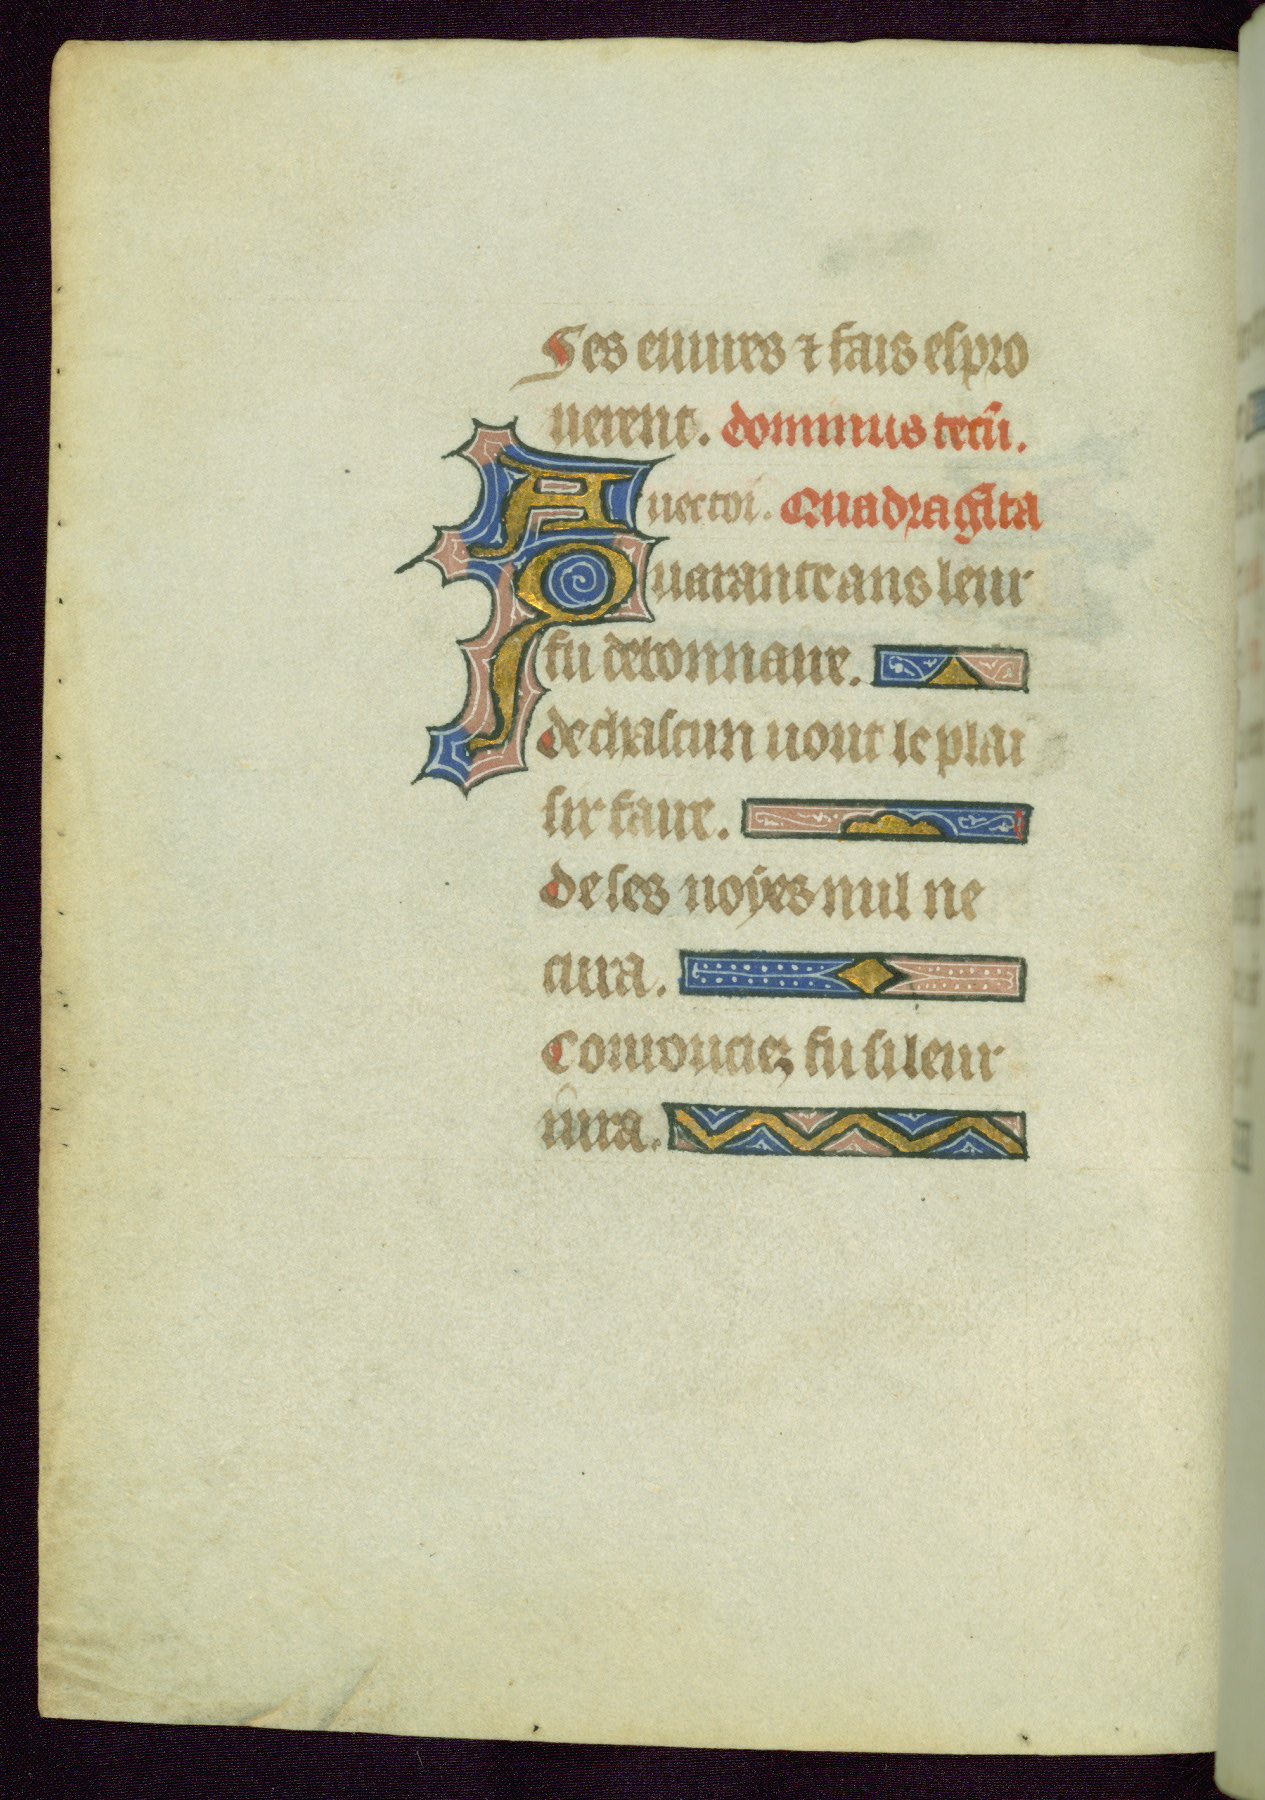 Ses euures ⁊ fais espro
uerent. dominus tecũ.
Auec toi. Quadragĩta
Quarante ans leur
fu debonnaire.
de chascun uout le plai
sir faire.
de ses uoyes nul ne
cura.
Courouciez fu si leur
iura.